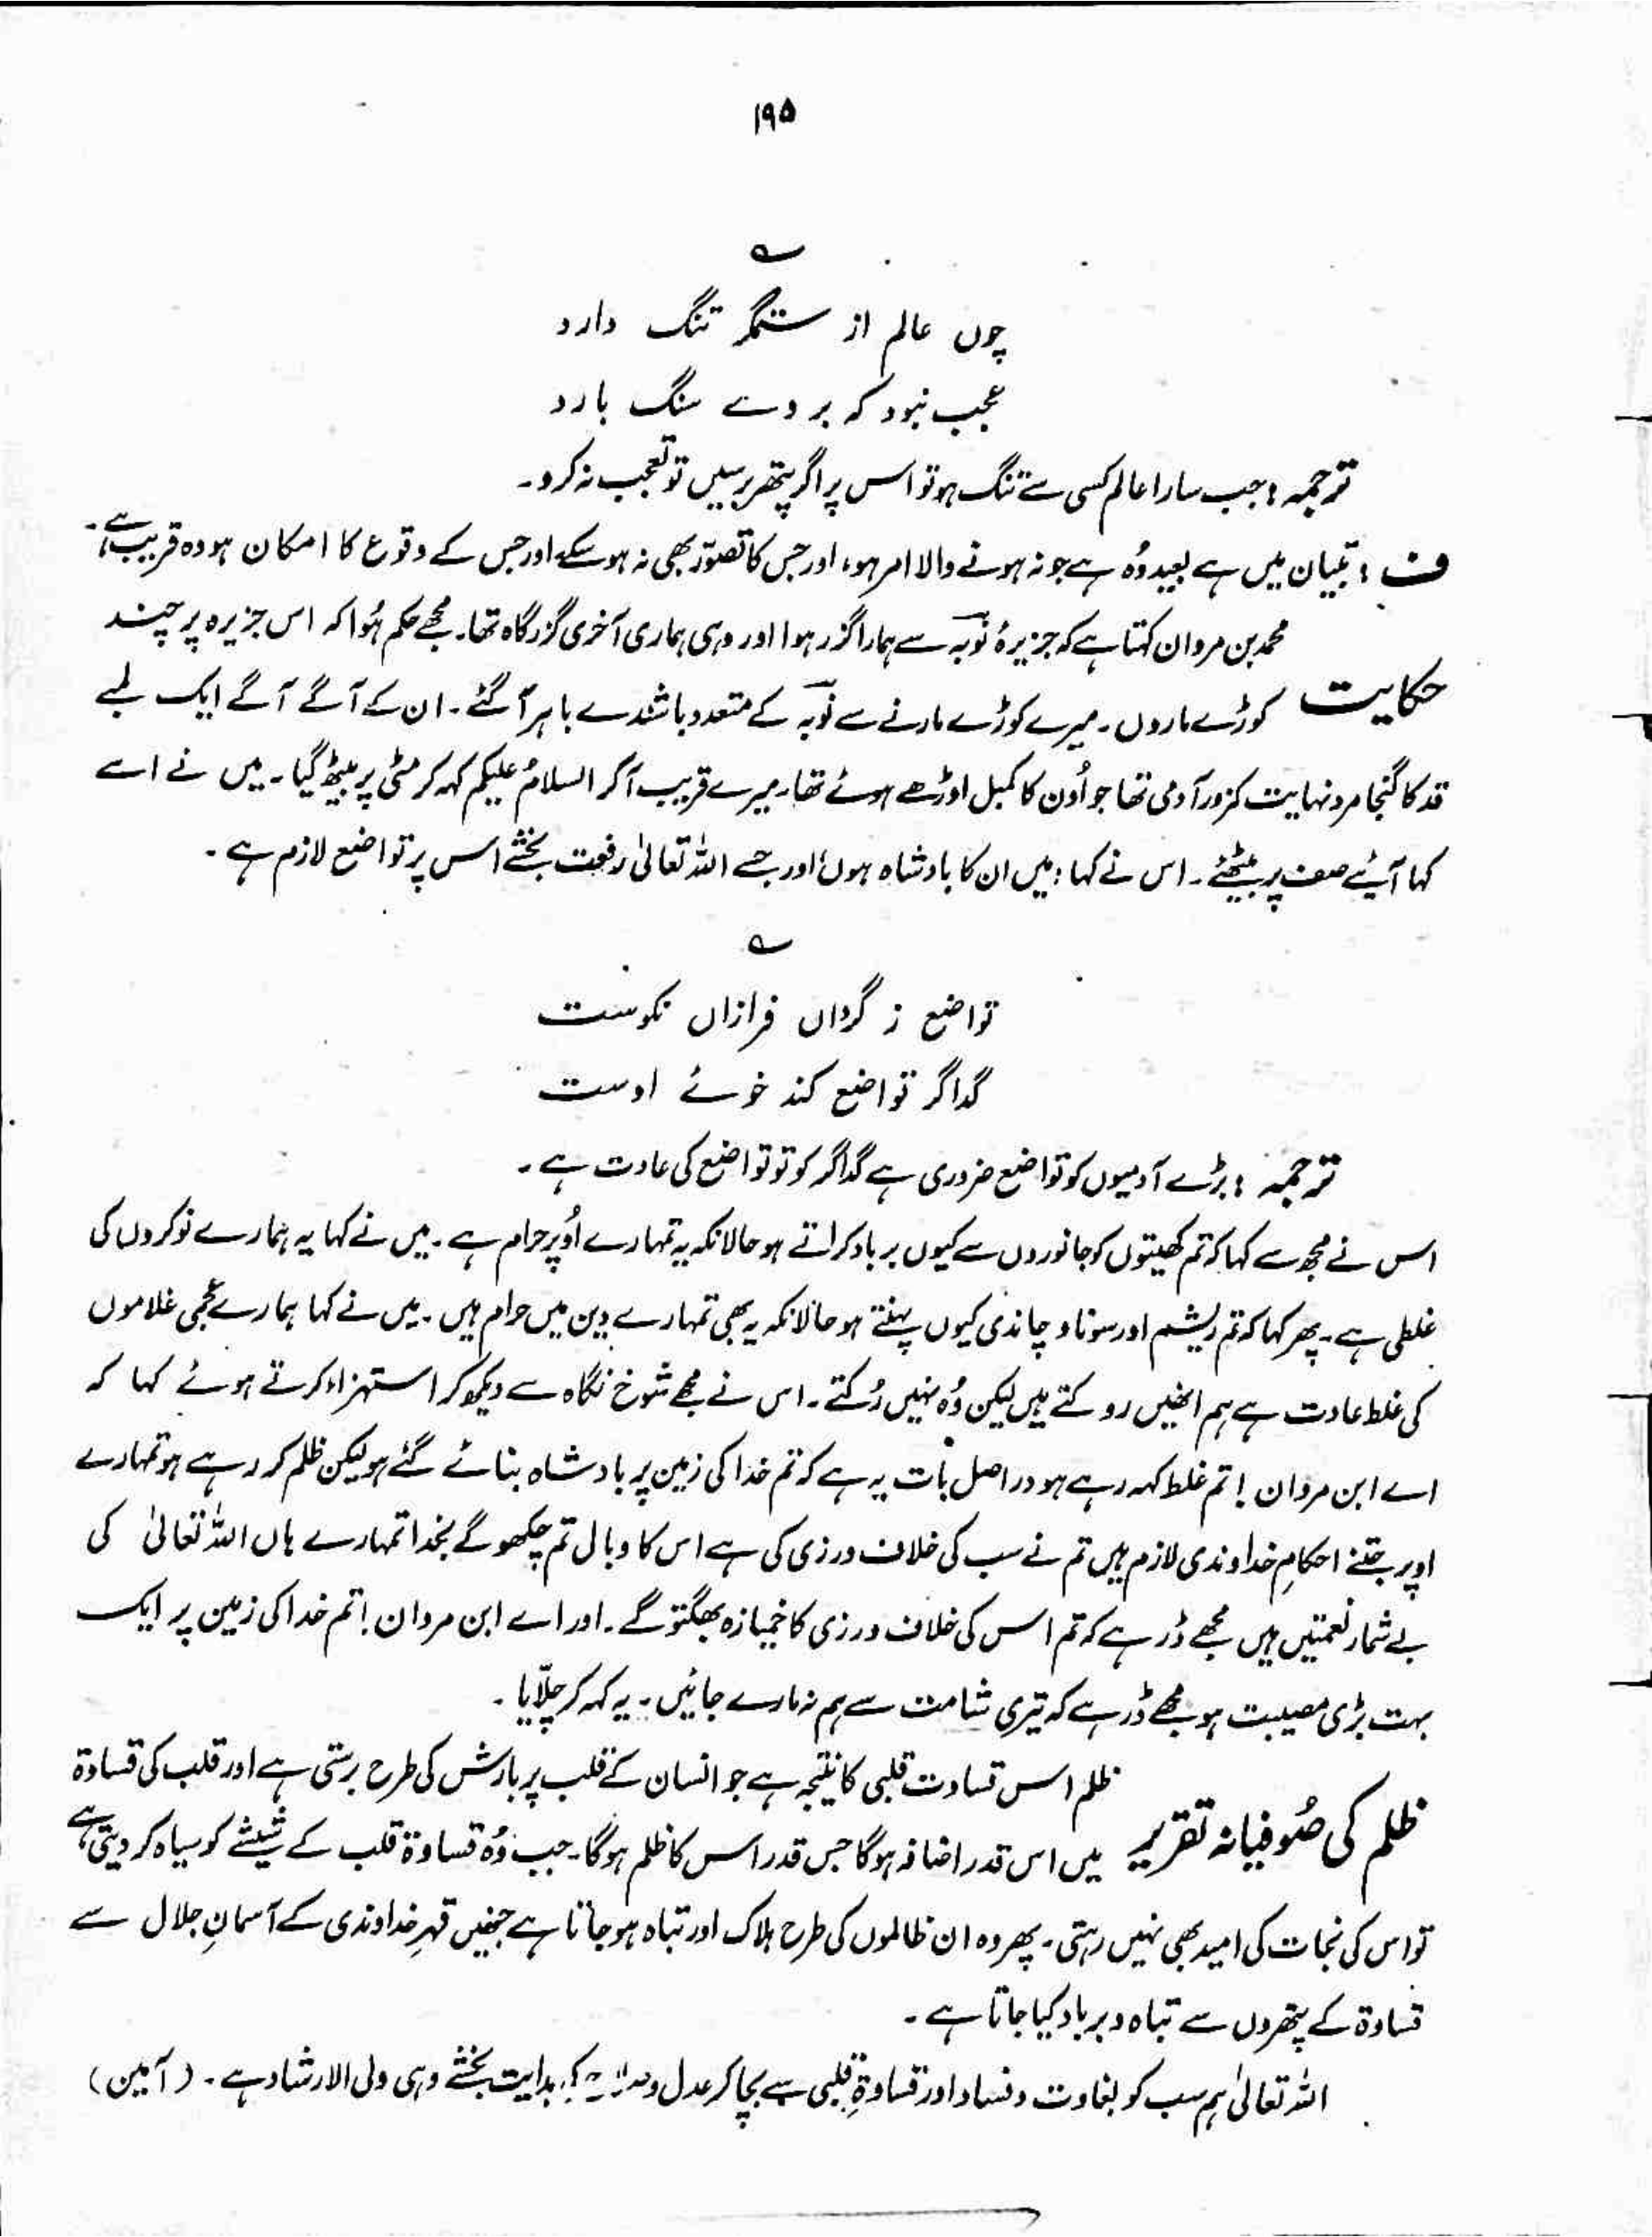 ۱۹۵
؎
چوں عالم از ستمگر تنگ دارد
عجب نبود کہ بر وے سنگ بارد
ترجمہ : جب سارا عالم کسی سے تنگ ہو تو اس پر اگر پتھر برسیں تو تعجب نہ کرو۔
ف : تبیان میں ہے بعید وُہ ہے جو نہ ہونے والا امر ہو، اور جس کا تصوّر بھی نہ ہوسکے اور جس کے وقوع کا امکان ہو وہ قریب ہے۔
محمد بن مروان کہتا ہے کہ جزیرۂ نوبہ سے ہمارا گزر ہوا اور وہی ہماری آخری گزرگاہ تھا۔ مجھے حکم ہُوا کہ اس جزیرہ پر چند
حکایت کوڑے ماروں۔ میرے کوڑے مارنے سے نوبہ کے متعدد باشندے باہر آگئے۔ ان کے آگے آگے ایک لمبے
قد کا گنجا مرد نہایت کمزور آدمی تھا جو اُون کا کمبل اوڑھے ہوئے تھا۔ میرے قریب آکر السلامُ علیکم کہہ کر مٹی پر بیٹھ گیا۔ میں نے اسے
کہا آئیے صف پر بیٹھئے۔ اس نے کہا : میں ان کا بادشاہ ہوں اور جسے اللہ تعالیٰ رفعت بخشے اس پر تواضع لازم ہے۔
؎
تواضع ز گرداں فرازاں نکوست
گدا گر تواضع کند خوئے اوست
ترجمہ : بڑے آدمیوں کو تواضع ضروری ہے گداگر کو تو تواضع کی عادت ہے۔
اس نے مجھ سے کہا کہ تم کھیتوں کو جانوروں سے کیوں برباد کراتے ہو حالانکہ یہ تمہارے اُوپر حرام ہے۔ میں نے کہا یہ ہمارے نوکروں کی
غلطی ہے۔ پھر کہا کہ تم ریشم اور سونا و چاندی کیوں پہنتے ہو حالانکہ یہ بھی تمہارے دین میں حرام ہیں۔ میں نے کہا ہمارے عجمی غلاموں
کی غلط عادت ہے ہم انھیں روکتے ہیں لیکن وُہ نہیں رُکتے۔ اس نے مجھے شوخ نگاہ سے دیکھ کر استہزاء کرتے ہوئے کہا کہ
اے ابن مروان ! تم غلط کہہ رہے ہو دراصل بات یہ ہے کہ تم خدا کی زمین پر بادشاہ بنائے گئے ہو لیکن ظلم کر رہے ہو تمہارے
اوپر جتنے احکامِ خداوندی لازم ہیں تم نے سب کی خلاف ورزی کی ہے اس کا وبال تم چکھو گے بخدا تمہارے ہاں اللہ تعالیٰ کی
بے شمار نعمتیں ہیں مجھے ڈر ہے کہ تم اس کی خلاف ورزی کا خمیازہ بھگتو گے۔ اور اے ابن مروان ! تم خدا کی زمین پر ایک
بہت بڑی مصیبت ہو مجھے ڈر ہے کہ تیری شامت سے ہم نہ مارے جائیں۔ یہ کہہ کر چلّایا۔
ظلم اس قساوت قلبی کا نتیجہ ہے جو انسان کے قلب پر بارش کی طرح برستی ہے اور قلب کی قساوۃ
ظلم کی صُوفیانہ تقریر میں اس قدر اضافہ ہوگا جس قدر اس کا ظلم ہوگا۔ جب وُہ قساوۃ قلب کے شیشے کو سیاہ کر دیتی ہے
تو اس کی نجات کی امید بھی نہیں رہتی۔ پھر وہ ان ظالموں کی طرح ہلاک اور تباہ ہو جاتا ہے جنھیں قہرِ خداوندی کے آسمانِ جلال سے
قساوۃ کے پتھروں سے تباہ و برباد کیا جاتا ہے۔
اللہ تعالیٰ ہم سب کو بغاوت و فساد اور قساوۃِ قلبی سے بچا کر عدل و ہدایت بخشے وہی ولی الارشاد ہے۔ (آمین)